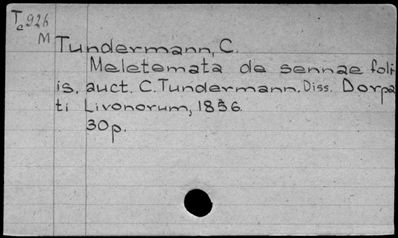 Te 926
M
Tundermann, C.
Meletemata de sennae foli-
is, auct. C. Tundermann. Diss. Dorpa-
ti Livonorum, 1856.
30p.